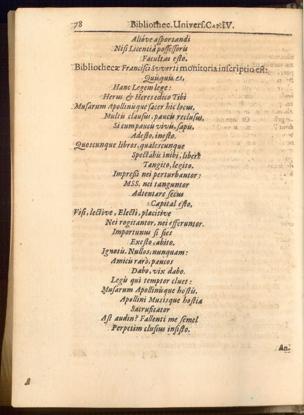 78 Bibliothec. Univers. Cap. IV.
Aliúve asportandi
Nisi Licentiâ possessoris
Facultas esto.
Bibliothecæ Francisci Swverti monitoria inscriptio est:
Quisquis es,
Hanc Legem lege:
Herus & Heres edico Tibi
Musarum Apollinisque sacer hic locus,
Multis clausus, paucis reclusus,
Si cum paucis vivis, sapis,
Adesto, inesto.
Quoscunque libros, qualescunque
Spectabis inibi, liberè
Tangito, legito.
Impressi nei perturbantor:
MSS. nei tanguntor
Adientare secus
Capital esto,
Visi, lectivè, Electi, placitivè
Nei rogitantor, nei efferuntor.
Importunus si sies
Exesto, abito.
Ignotis, Nullos, nunquam:
Amicis rarò, paucos
Dabo, vix dabo.
Legis qui temptor cluet:
Musarum Apollinisque hostis,
Apollini Musisque hostia
Sacrufitator
Ast audin? Fallenti me semel
Perpetim clusius insisto.
An-